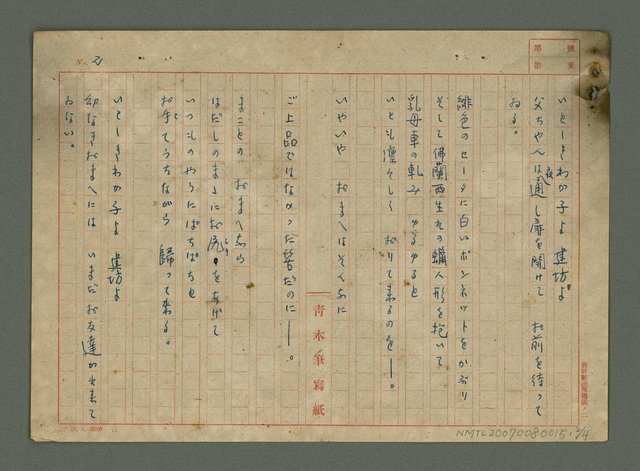 いとしきわが子よ 建坊よ
父ちやんは夜通し扉を開けて お前を待って
ゐる。
緋色のセータに白いボンネットをかぶり
そして佛蘭西生れの蠟人形を抱いて
乳母車の軋み ゆるゆると
いとも凛々しく おりて来るのを——。
いやいや おまへはそんなに
ご上品ではなかった筈だのに——。
まことの おまへなら
はだしのまゝにお尻をあげて
いつものやうにぱちぱちと
お手てうちながら 歸って来る。
いとしきわが子よ 建坊よ
幼なきおまへには いまだお友達が出来て
ゐない。
青木筆寫紙
No. 2
第 號
第 葉
NMTL20070080015